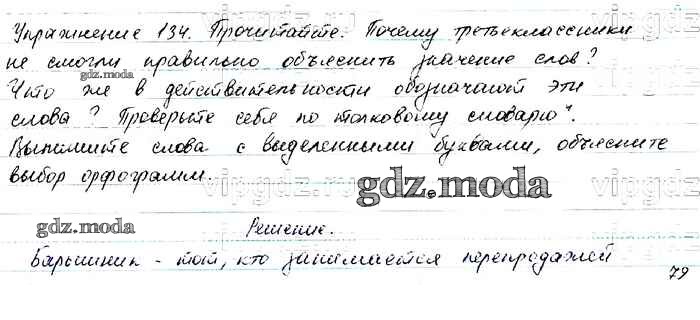 Упражнение 134. Прочитайте. Почему третьеклассники
не смогли правильно объяснить значение слов?
gdz.moda
Что же в действительности обозначают эти
слова? Проверьте себя по толковому словарю".
Выпишите слова с выделенными буквами, объясните
выбор орфограмм.
gdz.moda
vipgdz.ru
gdz.moda
Решение.
Барышник - тот, кто занимается перепродажей
gdz.moda
79